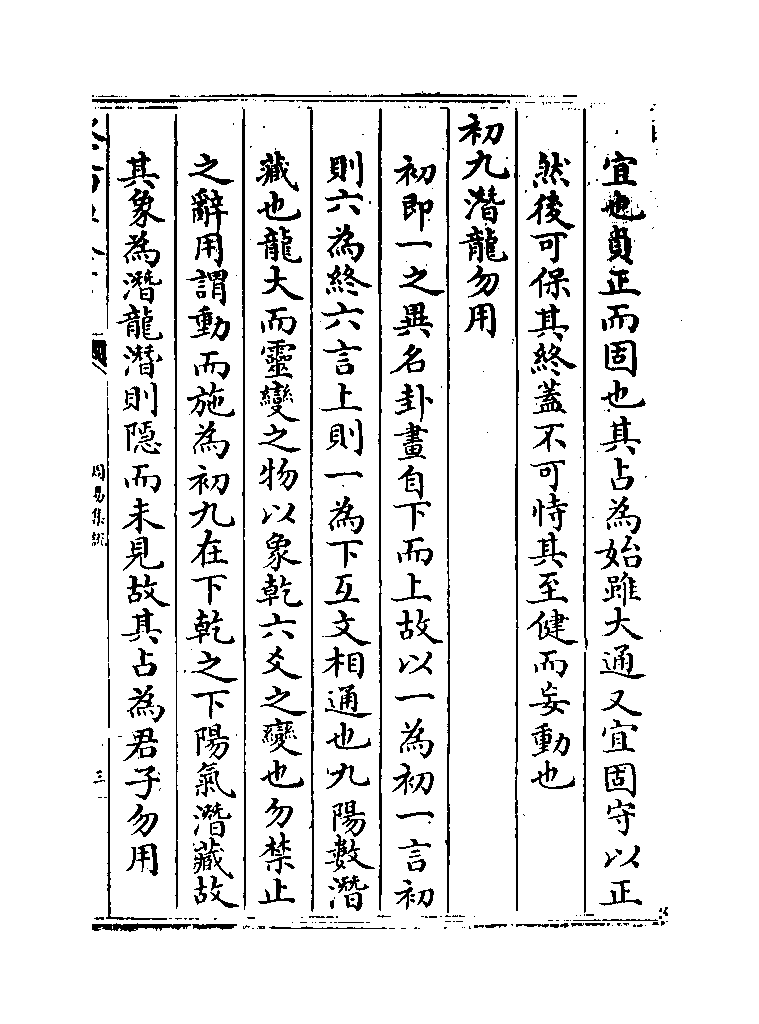 宜也貞正而固也其占為始雖大通又宜固守以正
然後可保其終蓋不可恃其至健而妄動也
初九潛龍勿用
初即一之異名卦畫自下而上故以一為初一言初
則六為終六言上則一為下互文相通也九陽數潛
藏也龍大而靈變之物以象乾六爻之變也勿禁止
之辭用謂動而施為初九在下乾之下陽氣潛藏故
其象為潛龍潛則隱而未見故其占為君子勿用
周易集說
三